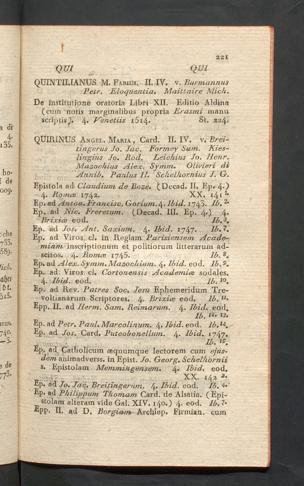 221
QUI QUI
QUINTILIANUS M. FABIUS. II. IV. v. Burmannus
Petr. Eloquentia. Maittaire Mich.
De institutione oratoria Libri XII. Editio Aldina
(cum notis marginalibus propria Erasmi manu
scriptis). 4. Venetiis 1514. St. 224.
QUIRINUS ANGEL. MARIA, Card. II. IV. v. Brei-
tingerus Jo. Jac. Formey Sum. Kies-
lingius Jo. Rod. Leichius Jo. Henr.
Mazochius Alex. Symm. Olivieri di
Annib. Paulus II. Schelhornius J. G.
Epistola ad Claudium de Boze. (Decad. II. Ep. 4.)
4. Romæ 1742. XX. 141
Ep. ad Anton. Francisc. Gorium. 4. Ibid. 1743. Ib.
Ep. ad Nic. Freretum. (Decad. III. Ep. 4.) 4.
Brixiæ eod. Ib.
Ep. ad Jos. Ant. Saxium. 4. Ibid. 1747. Ib.
Ep. ad Viros cl. in Regiam Parisinorum Acade-
miam inscriptionum et politiorum litterarum ad-
scitos. 4. Romæ 1745. Ib.
Ep. ad Alex. Symm. Mazochium. 4. Ibid. eod. Ib.
Ep. ad Viros cl. Cortonensis Academiæ sodales.
4. Ibid. eod. Ib.
Ep. ad Rev. Patres Soc. Jesu Ephemeridum Tre-
voltianarum Scriptores. 4. Brixiæ eod. Ib.
Epp. II. ad Herm. Sam. Reimarum. 4. Ibid. eod.
Ib.
Ep. ad Petr. Paul. Marcolinum. 4. Ibid. eod. Ib.
Ep. ad Jos. Card. Puteobonellum. 4. Ibid. 1747.
Ib.
Ep. ad Catholicum æquumque lectorem cum ejus-
dem animadverss. in Epist. Jo. Georg. Schelhornii
2. Epistolam Memmingensem. 4. Ibid. eod.
XX. 142
Ep. ad Jo. Jac. Breitingerum. 4. Ibid. eod. Ib.
Ep. ad Philippum Thomam Card. de Alsatia. (Epi-
stolam alteram vide Gal. XIV. 140.) 4. eod. Ib.
Epp. II. ad D. Borgiam Archiep. Firmian. cum